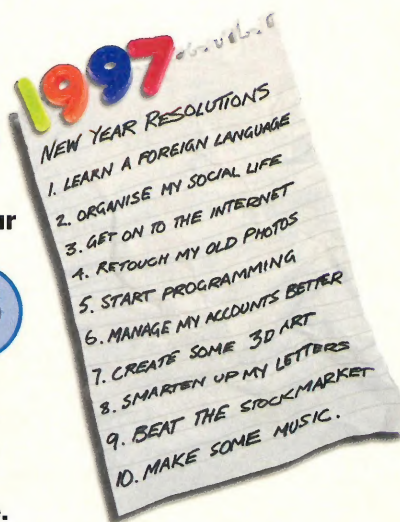 1997
NEW YEAR RESOLUTIONS
1. LEARN A FOREIGN LANGUAGE
2. ORGANISE MY SOCIAL LIFE
3. GET ON TO THE INTERNET
4. RETOUCH MY OLD PHOTOS
5. START PROGRAMMING
6. MANAGE MY ACCOUNTS BETTER
7. CREATE SOME 3D ART
8. SMARTEN UP MY LETTERS
9. BEAT THE STOCKMARKET
10. MAKE SOME MUSIC.